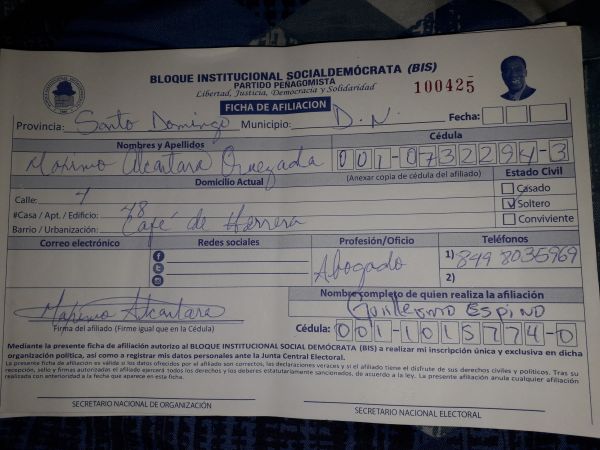 BLOQUE INSTITUCIONAL SOCIALDEMÓCRATA (BIS)
PARTIDO PEÑAGOMISTA
Libertad, Justicia, Democracia y Solidaridad
100425
FICHA DE AFILIACION
Provincia: Santo Domingo Municipio: D.N. Fecha:
Nombres y Apellidos Cédula
Maximo Alcantara Quezada 001-0732294-3
Domicilio Actual (Anexar copia de cédula del afiliado) Estado Civil
Calle: 4 Casado
#Casa / Apt. / Edificio: 48 Soltero
Barrio / Urbanización: Café de Herrera Conviviente
Correo electrónico Redes sociales Profesión/Oficio Teléfonos
Abogado 1) 849 8035969
2)
Nombre completo de quien realiza la afiliación
Maximo Alcantara Guillermo Espino
Firma del afiliado (Firme igual que en la Cédula) Cédula: 001-1015774-0
Mediante la presente ficha de afiliación autorizo al BLOQUE INSTITUCIONAL SOCIAL DEMÓCRATA (BIS) a realizar mi inscripción única y exclusiva en dicha
organización política, así como a registrar mis datos personales ante la Junta Central Electoral.
La presente afiliación es válida si los datos ofrecidos por el afiliado son correctos, las declaraciones veraces y si el afiliado tiene el disfrute de sus derechos civiles y políticos. Tras su
recepción, sello y firmas autorizadas el afiliado ejercerá todos los derechos y los deberes estatutariamente sancionados, de acuerdo a la ley. La presente afiliación anula cualquier afiliación
realizada con anterioridad a la fecha que aparece en esta ficha.
SECRETARIO NACIONAL DE ORGANIZACIÓN SECRETARIO NACIONAL ELECTORAL